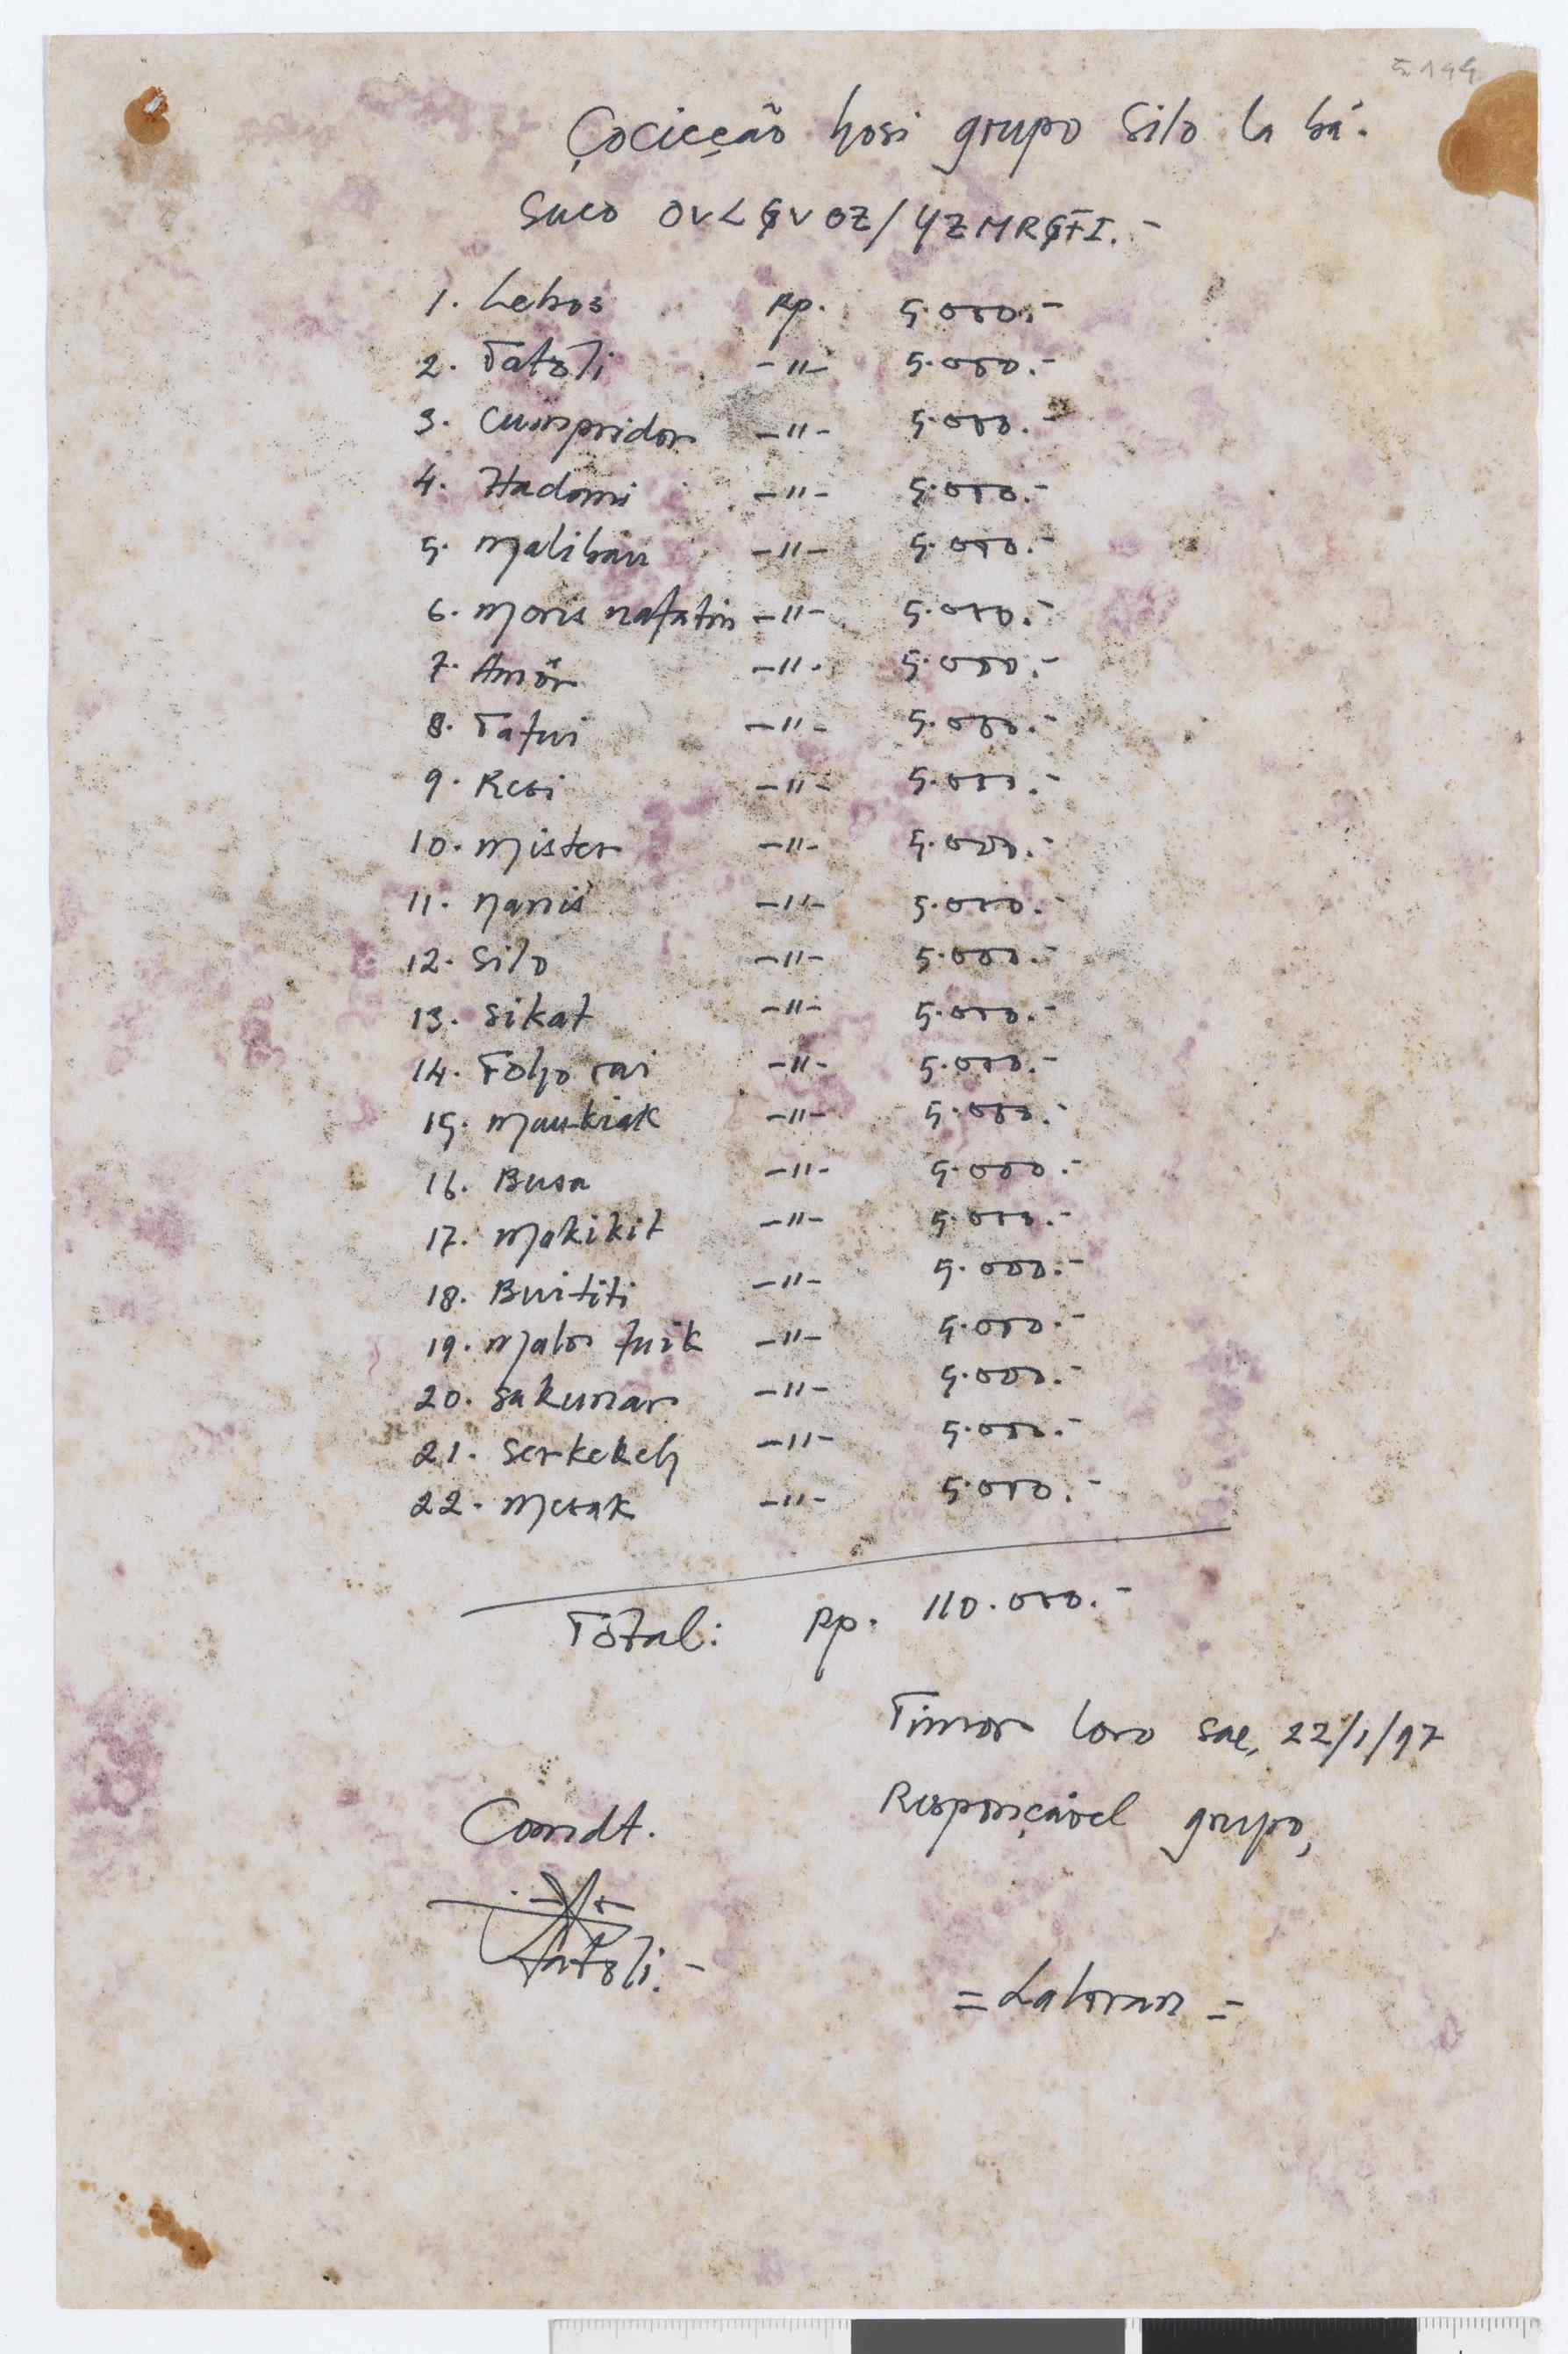 5199
Çocicção hosi grupo Silo la bá.
Suco OVLGVOZ/YZMRGFI.-
1. Lebos Rp. 5.000.-
2. Tatoli -"- 5.000.-
3. Cumpridor -"- 5.000.-
4. Hadomi -"- 5.000.-
5. Malibau -"- 5.000.-
6. Moris nafatin -"- 5.000.-
7. Amôr -"- 5.000.-
8. Tafui -"- 5.000.-
9. Resi -"- 5.000.-
10. Mister -"- 5.000.-
11. Nanis -"- 5.000.-
12. Silo -"- 5.000.-
13. Sikat -"- 5.000.-
14. Foho rai -"- 5.000.-
15. Maukiak -"- 5.000.-
16. Busa -"- 5.000.-
17. Makikit -"- 5.000.-
18. Buititi -"- 5.000.-
19. Maloi fuik -"- 5.000.-
20. Sakunar -"- 5.000.-
21. Serkekeh -"- 5.000.-
22. Mesak -"- 5.000.-
Total: Rp. 110.000.-
Timor loro sae, 22/1/97
Comdt. Responçável grupo,
Tatoli.-
= Laboran =